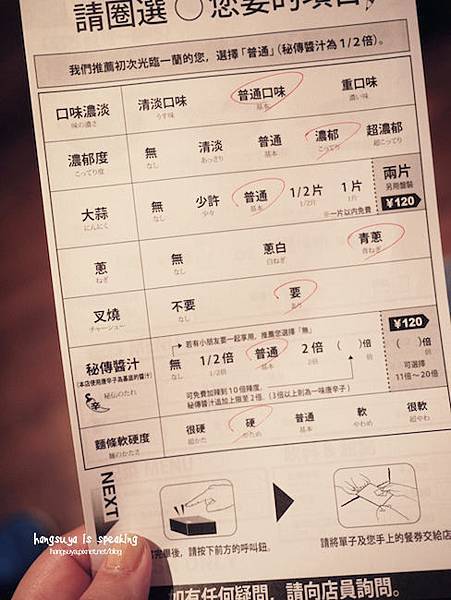 請圈選 ○ 您要的項目
我們推薦初次光臨一蘭的您，選擇「普通」（秘傳醬汁為1/2倍）。
口味濃淡 清淡口味 普通口味 重口味
味の濃さ うす味 基本 濃い味
濃郁度 無 清淡 普通 濃郁 超濃郁
こってり度 なし あっさり 基本 こってり 超こってり
大蒜 無 少許 普通 1/2片 1片 兩片
にんにく なし 少々 基本 1/2片 1片 另用盤裝
※一片以內免費 ¥120
蔥 無 蔥白 青蔥
ねぎ なし 白ねぎ 青ねぎ
叉燒 不要 要
チャーシュー なし あり
若有小朋友要一起享用，推薦您選擇「無」 ¥120
秘傳醬汁 無 1/2倍 普通 2倍 ( )倍 ( )倍
（本店使用唐辛子為基底的醬汁） なし 1/2倍 基本 2倍 倍 倍
秘伝のたれ
辛
可免費加辣到10倍辣度。
秘傳醬汁追加上限至2倍。（3倍以上則為一味唐辛子）
可選擇
11倍～20倍
麵條軟硬度 很硬 硬 普通 軟 很軟
麺のかたさ 超かた かため 基本 やわめ 超やわ
NEXT
完畢後，請按下前方的呼叫鈕。
請將單子及您手上的餐券交給店
如有任何疑問，請向店員詢問。
hangsuya is speaking
hangsuya.pixnet.net/blog